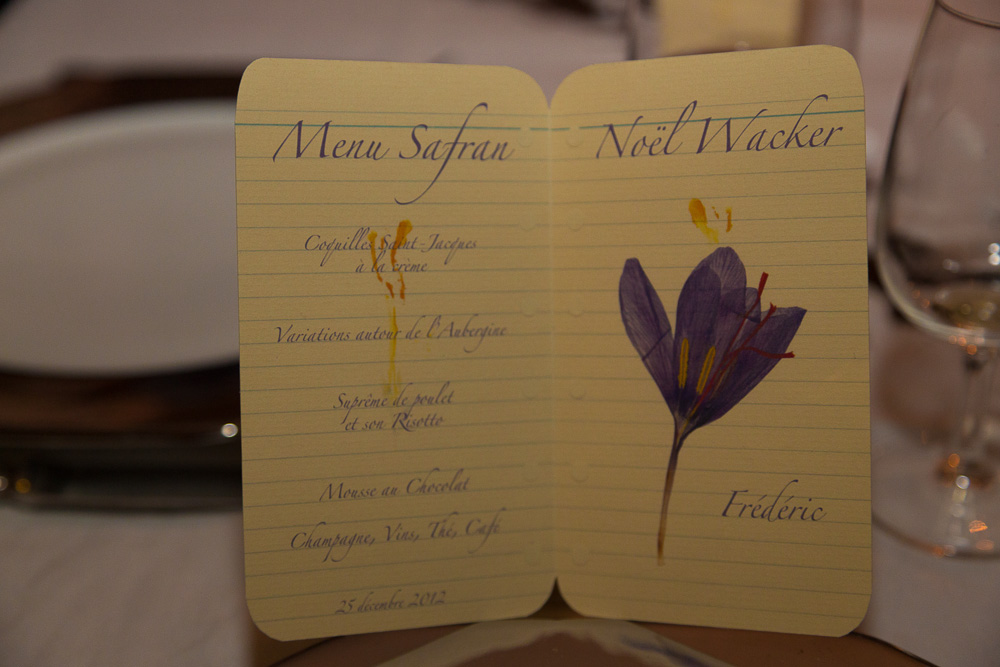 Menu Safran
Coquilles Saint-Jacques
à la crème
Variations autour de l'Aubergine
Suprême de poulet
et son Risotto
Mousse au Chocolat
Champagne, Vins, Thé, Café
25 décembre 2012
Noël Wacker
Frédéric